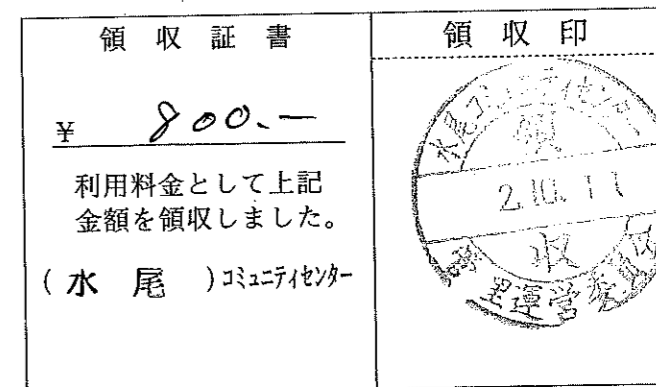 領収証書
¥ 800.—
利用料金として上記
金額を領収しました。
(水尾)コミュニティセンター
領収印
水尾コミュニティセンター
領
2.10.11
収
管理運営委員会